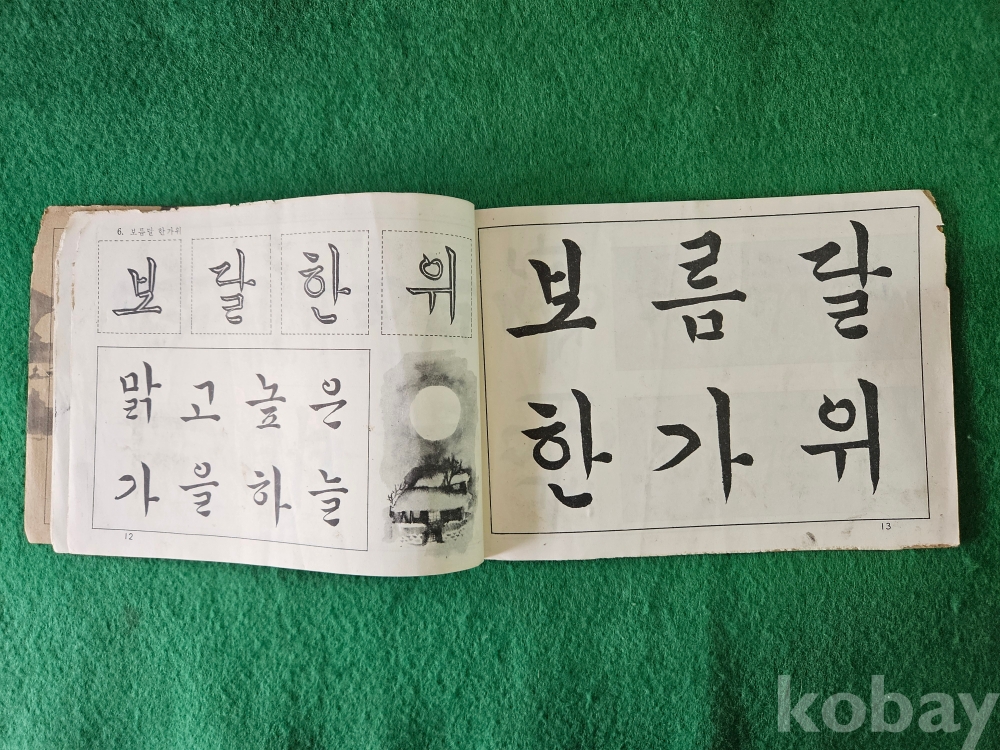 6. 보름달 한가위
보 달 한 위
맑 고 높 은
가 을 하 늘
12
보 름 달
한 가 위
13
kobay